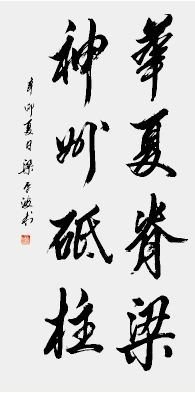 華夏脊梁
神州砥柱
辛卯夏日梁